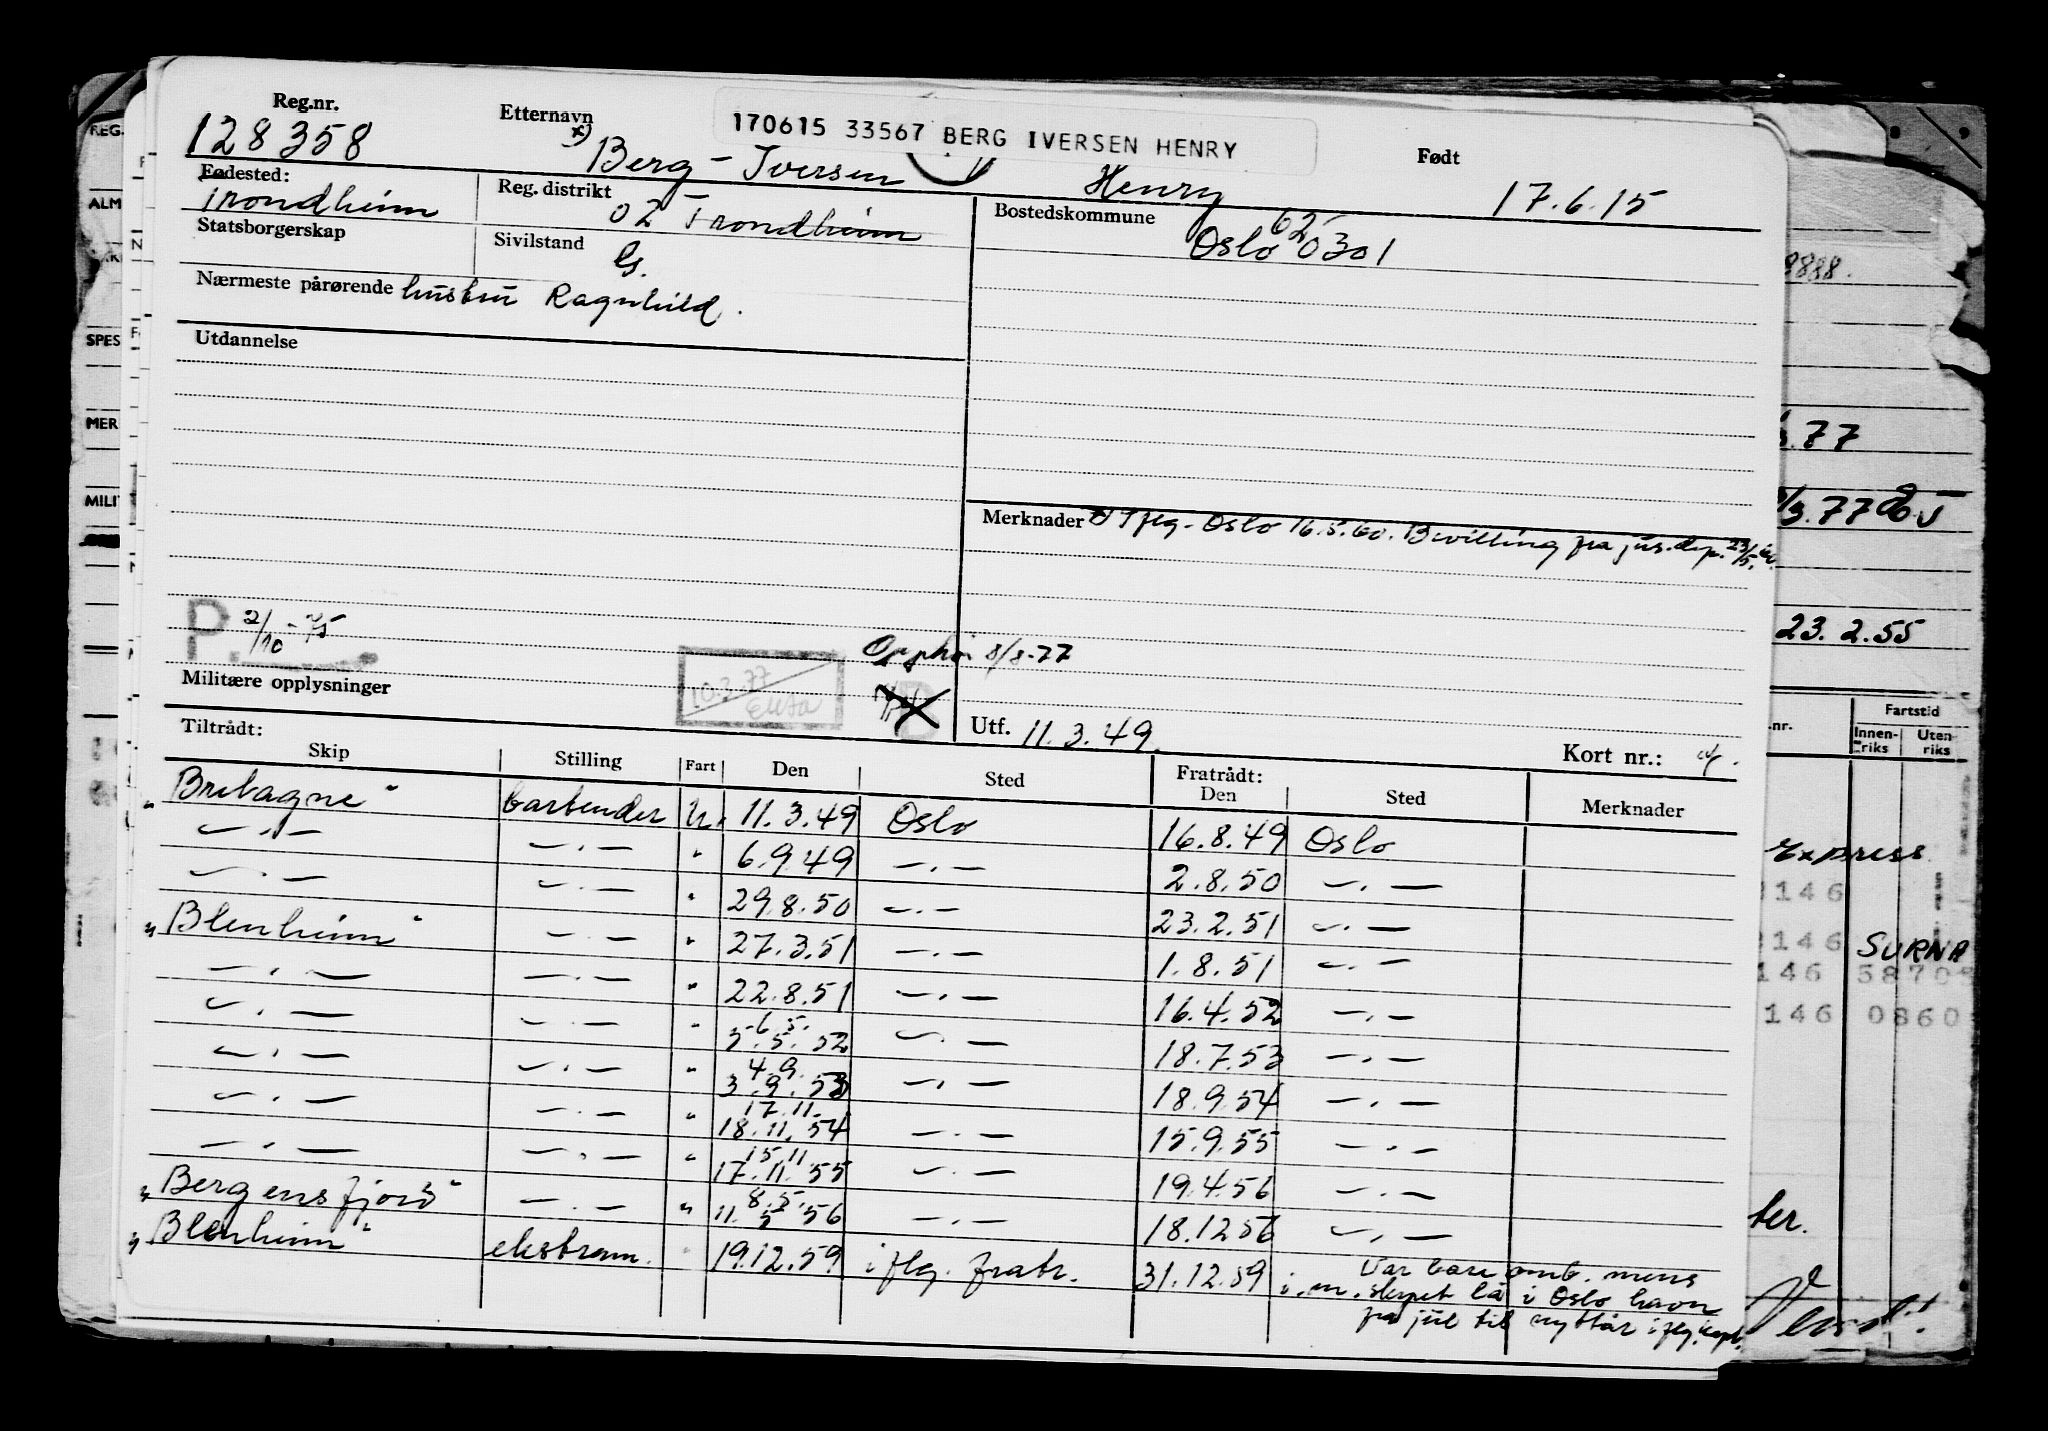 Reg.nr.
128358
Etternavn
x) Berg - Iversen
170615 33567 BERG IVERSEN HENRY
Henry
Født
17.6.15
Fødested:
Trondheim
Reg. distrikt
02 Trondheim
Bostedskommune
62
Oslo 0301
Statsborgerskap
Sivilstand
G.
Nærmeste pårørende hustru Ragnhild.
Utdannelse
Merknader x) Iflg. Oslo 16.5.60. Bevilling fra jus.dep. 23/5.
P. 2/10-75
10.3.77
Opphør 8/8-77
Militære opplysninger
Utf. 11.3.49.
Kort nr.: 4.
Tiltrådt:
Skip Stilling Fart Den Sted Fratrådt: Den Sted Merknader
"Bretagne" bartender U. 11.3.49 Oslo 16.8.49 Oslo
— " — — " — " 6.9.49 — " — 2.8.50 — " —
— " — — " — " 29.8.50 — " — 23.2.51 — " —
"Blenheim" — " — " 27.3.51 — " — 1.8.51 — " —
— " — — " — " 22.8.51 — " — 16.4.52 — " —
6.5.
— " — — " — " 5.5.52 — " — 18.7.53 — " —
4.9.
— " — — " — " 3.9.53 — " — 18.9.54 — " —
17.11.
— " — — " — " 18.11.54 — " — 15.9.55 — " —
15.11
— " — — " — " 17.11.55 — " — 19.4.56 — " —
8.5.
"Bergensfjord" — " — " 11.5 56 — " — 18.12 56 — " —
"Blenheim" ekstram. " 19.12.59 iflg. fratr. 31.12.59 i.m. Var bare omb. mens
skipet lå i Oslo havn
fra jul til nyttår iflg. kapt.
REG.
ALM
SPES
MER
MILI
9888.
.77
/3.77
23.2.55
.nr.
Fartstid
Innen-riks
Uten-riks
Express
146
146 SURNA
146 5870
146 0860
ter.